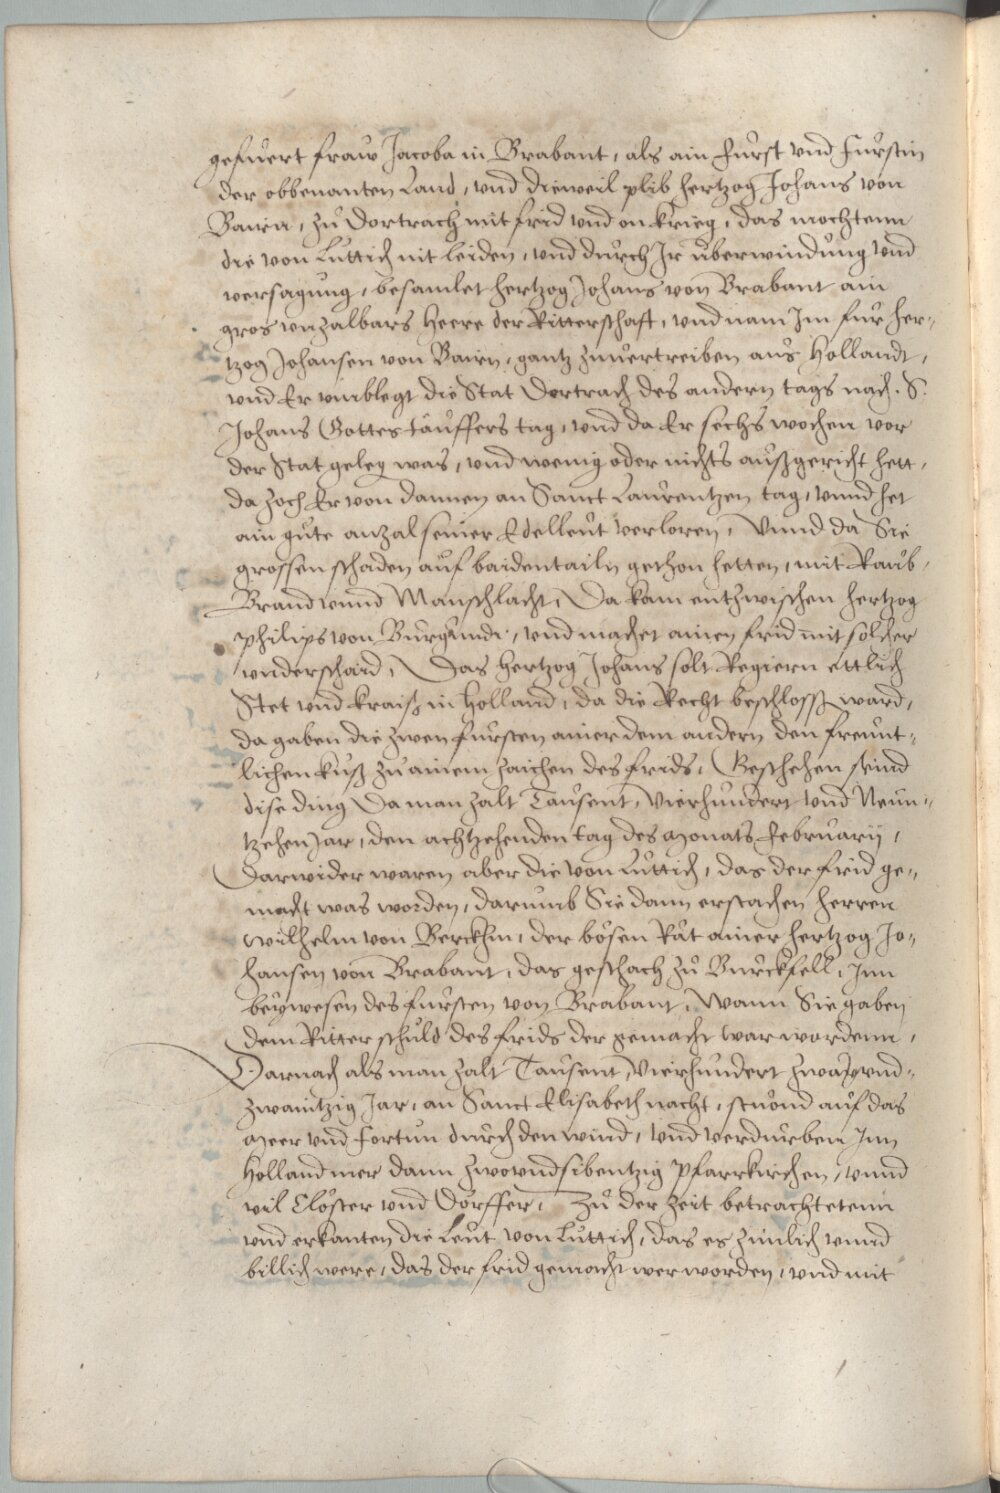 gefuert fraw Jacoba in Brabant, als ain Furst vnd Furstin
der obbenanten Land, vnd dieweil plib hertzog Johans von
Bairn, zu Dortrach mit frid vnd on krieg, das mochtenn
die von Luttich nit leiden, vnd durch Ir uberwindung vnd
versagung, besamlet hertzog Johans von Brabant ain
gros vnzalbars Heere der Ritterschaft, vnd nam Im fur her-
tzog Johansen von Bairn, gantz zuuertreiben aus Hollandt,
vnd Er vmblegt die Stat Dortrach des andern tags nach. S.
Johans Gottes tauffers tag, vnd da Er sechs wochen vor
der Stat geleg was, vnd wenig oder nichts außgericht hett,
da zoch Er von dannen an Sanct Laurentzen tag, vnnd het
ain gute anzal seiner Edelleut verloren, Vnnd da Sie
grossen schaden auf baidentailn gethon hetten, mit Raub,
Brand vnnd Manschlacht, Da kam enthzwischen hertzog
philips von Burgundi, vnd machet ainen frid mit solcher
vnderschaid, Das hertzog Johans solt Regiern ettlich
Stet vnd kraiß in Holland, da die Recht beschlossß ward,
da gaben die zwen fursten ainer dem andern den freunt-
lichen kuß zu ainem zaichen des frids, Geschehen seind
dise ding Da man zalt Tausent, Vierhundert vnd Neun-
tzehen Jar, den achtzehenden tag des Monats Februarij,
Darwider waren aber die von Luttich, das der frid ge-
macht was worden, darumb Sie dann erstachen herren
Wilhelm von Berckhm, der bosen Rat ainer hertzog Jo-
hansen von Brabant, das geschach zu Burckfell, Inn
beywesen des fursten von Brabant, Wann Sie gaben
dem Ritter schuld des frids der gemacht war wordenn,
Darnach als man zalt Tausent, Vierhundert zwaivnd-
zwaintzig Jar, an Sanct Elisabeth nacht, stuond auf das
Meer vnd Fortun durch den wind, vnd verdurben Inn
Holland mer dann zwovndsibentzig Pfarrkirchen, vnnd
vil Closter vnd Dorffer, Zu der Zeit betrachtetenn
vnd erkanten die Leut von Luttich, das es zimlich vnnd
billich were, das der frid gemacht wer worden, vnd mit